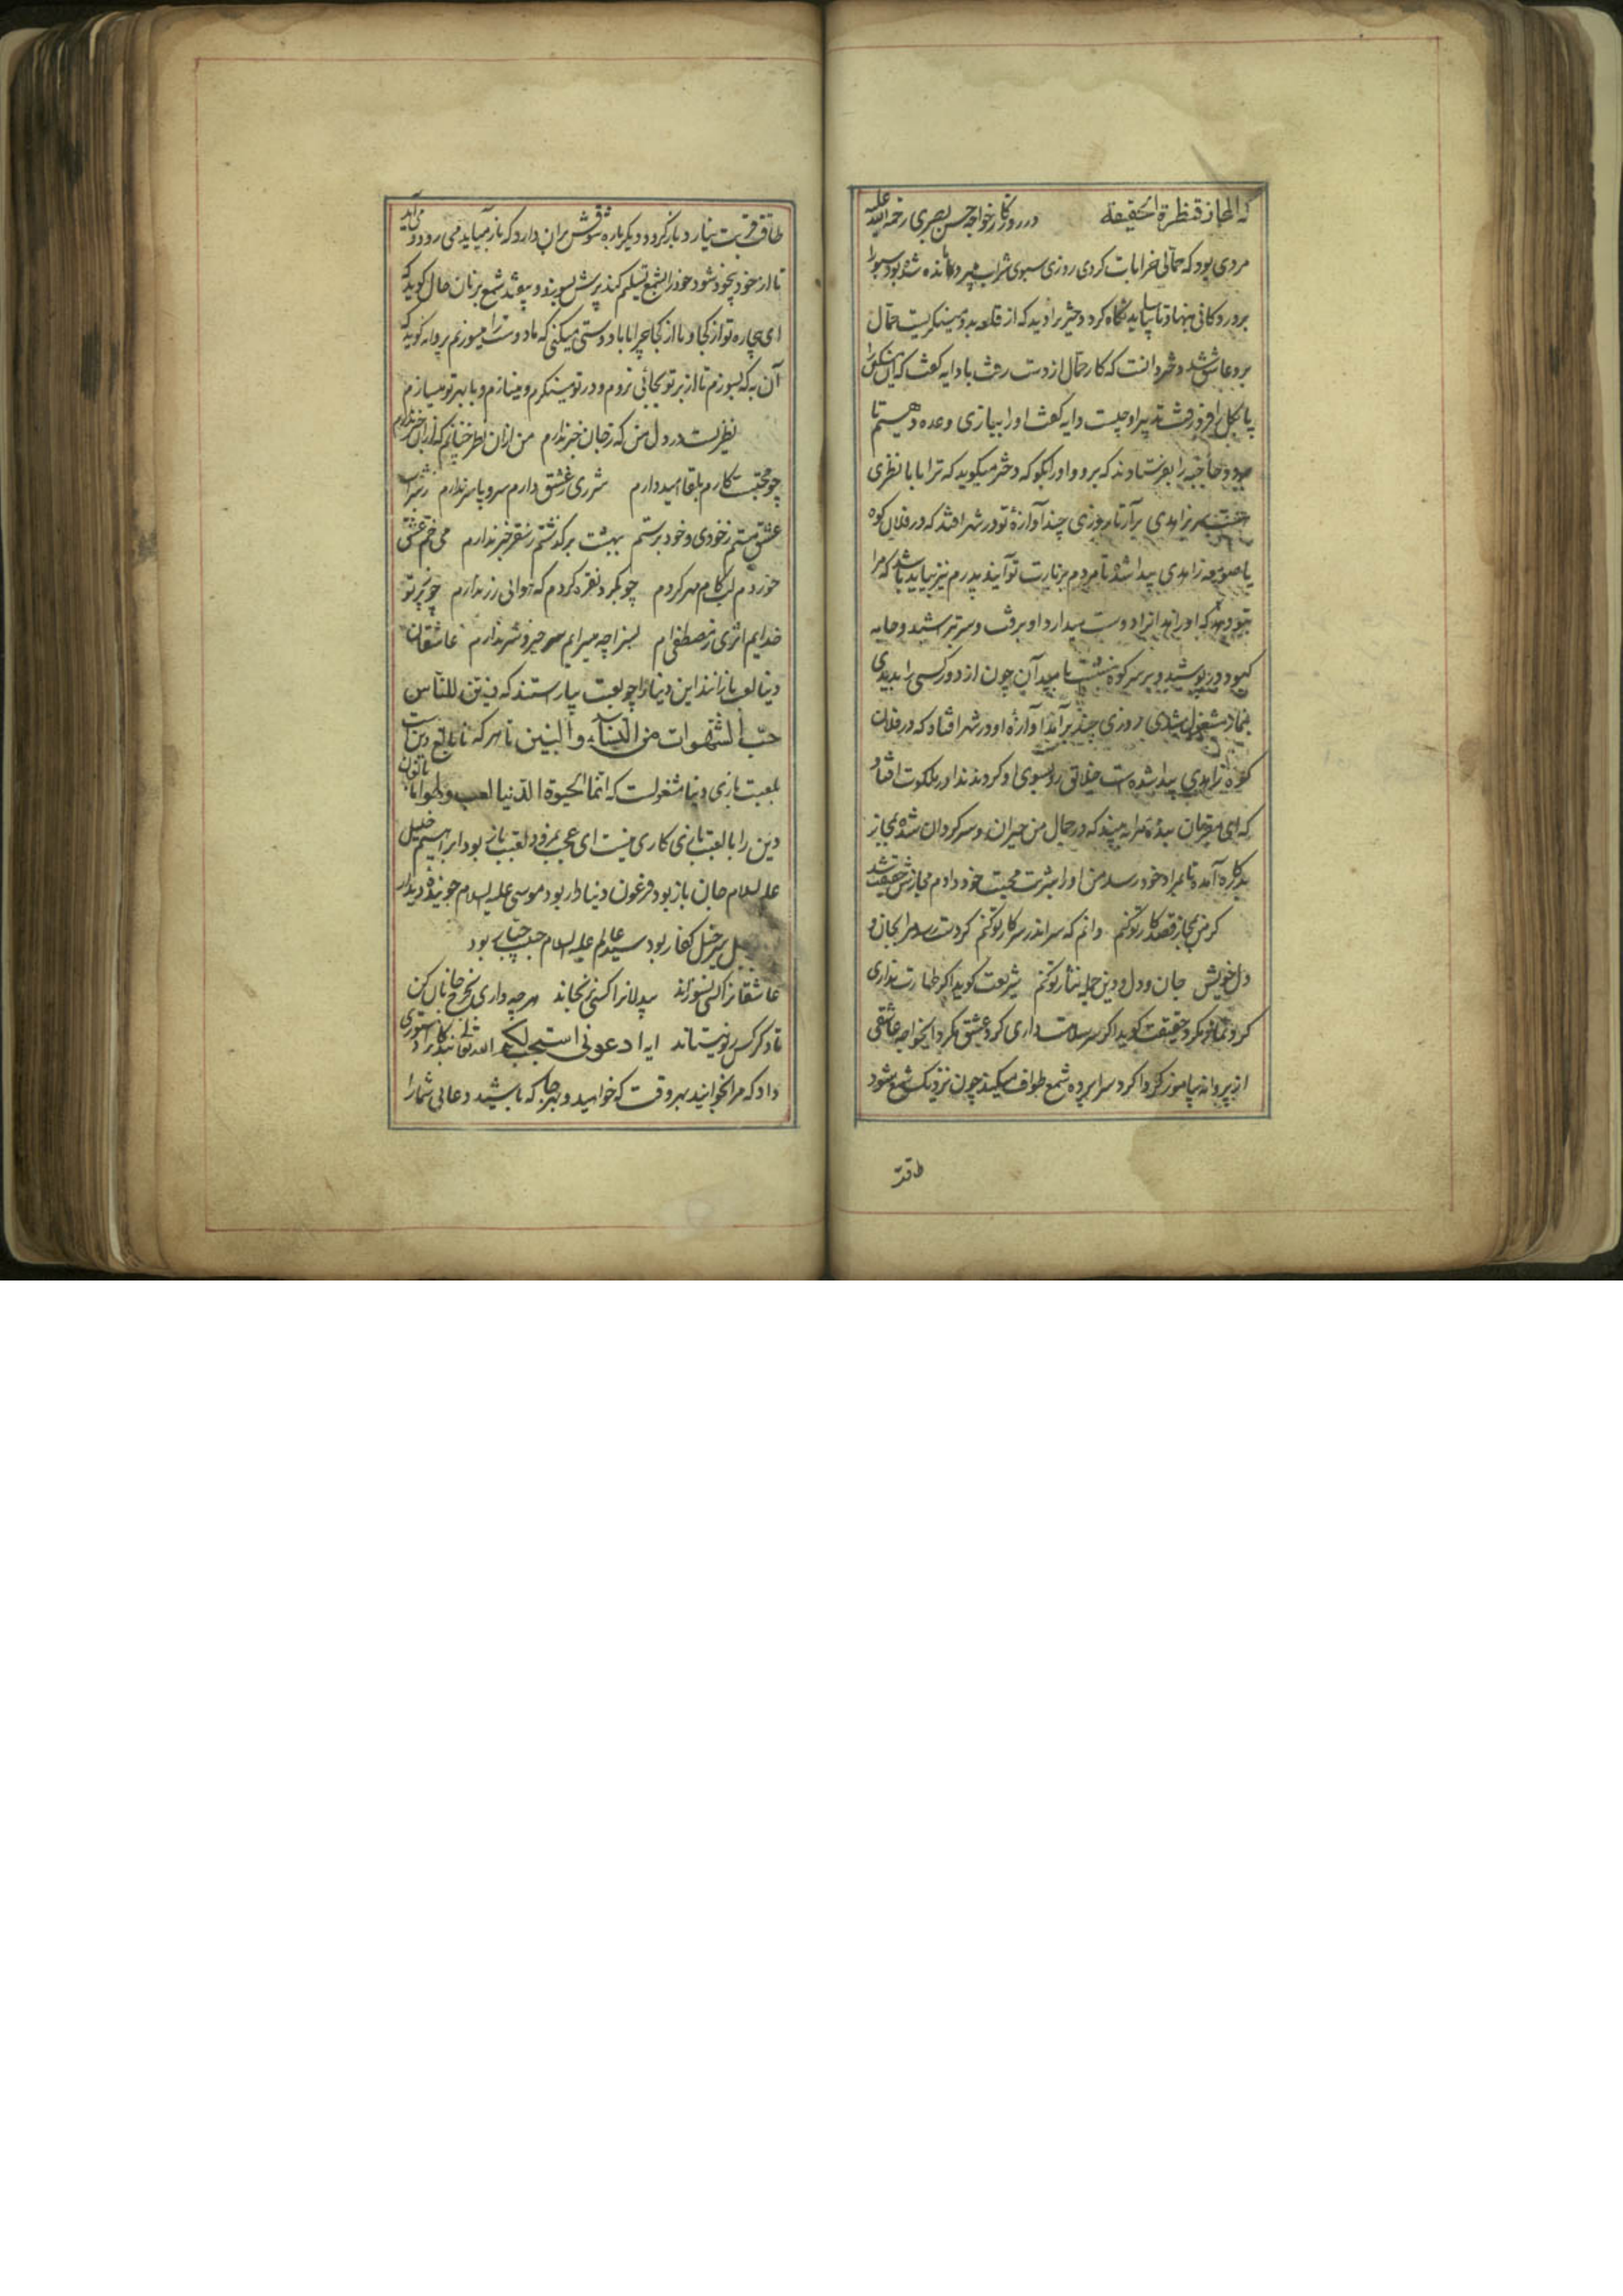 که المجاز قنطرة الحقیقة در روزگار خواجه حسن بصری رحمة الله علیه
مردی بود که حمالی خرابات کردی روزی سبوی شراب میبرد مانده شده بود سبو را
بر در دکانی بنهاد تا بیاساید نگاه کرد دختر را دید که از قلعه بدو مینگریست حمال
برو عاشق شد دختر دانست که کار حمال از دست رفت با دایه گفت که این مسکین را
پای بگل فرو رفت تدبیر او چیست دایه گفت او را ببازی وعده دهیم تا
برود حاجبه را بفرستادند که برو و او را بگو که دختر میگوید که ترا با ما نظری
زاهدی برآر تا روزی چند آوازهٔ تو در شهر افتد که در فلان کوه
یا صومعه زاهدی پیدا شده تا مردم بزیارت تو آیند پدرم نیز بیاید باشد که مرا
بتو دهد که او زاهدانرا دوست میدارد او برفت و سر بتراشید و جامه
کبود در پوشید و بر سر کوه بنشست بامید آن چون از دور کسی را بدیدی
بنماز مشغول شدی روزی چند برآمد آوازهٔ او در شهر افتاد که در فلان
کوه زاهدی پیدا شده است خلایق روی بسوی او کردند ندا در ملکوت افتاد
که ای مقربان بنده مرا به بینید که در جمال من حیران و سرگردان شده مجاز
بدکاره آمده تا بمراد خود رسد من او را شربت محبت خود دادم مجازش حقیقت شد
گر من بمجاز قصد کار تو کنم دانم که سر اندر سر کار تو کنم گر دست رسد مرا بجان و
دل خویش جان و دل و دین جمله نثار تو کنم شریعت گوید اگر طهارت نداری
گرد نماز مگرد حقیقت گوید اگر سر سلامت داری گرد عشق مگرد ای خواجه عاشقی
از پروانه بیاموز که گرد سراپرده شمع طواف میکند چون نزدیک شمع شود
طاقت
طاقت قربت نیارد باز گردد دیگر باره شوقش بران دارد که باز میآید می رود و می آید
تا از خود بیخود شود خود را بشمع تسلیم کند پرش بسوزد و بیفتد شمع بزبان حال گوید که
ای بیچاره تو از کجا و ما از کجا چرا با ما دوستی میکنی که ما دوست را میسوزیم پروانه گوید که
آن به که بسوزم تا از بر تو بجائی نروم و در تو مینگرم و مینازم و با مهر تو میسازم
نظریست در دل من که ز جان خبر ندارم من ازان نظر چنانم که ازان خبر ندارم
چو محبت نگارم بلقا امید دارم شرری ز عشق دارم سر و پا سر ندارم ز شراب
عشق مستم ز خودی و خود برستم ز بهشت بر گذشتم ز سقر خبر ندارم می خم عشق
خوردم لب کام مهر کردم چو بگرد نقره گردم که هوائی زر ندارم چو ز پرتو
خدایم اثری ز مصطفی ام بسزا چه میرایم سر خیر و شر ندارم عاشقان
دنیا لعب بازانند این دنیا را چو لعبت بیاراستند که زین للناس
حب الشهوات من النساء والبنین تا هر که نابالغ دین است
بلعبت بازی دنیا مشغولست که انما الحیوة الدنیا لعب ولهو اما بالغان
دین را با لعبت بازی کاری نیست ای عجب نمرود لعبت باز بود ابراهیم خلیل
علیه السلام جان باز بود فرعون دنیادار بود موسی علیه السلام جوینده دیدار
سرخیل کفار بود سید عالم علیه السلام حبیب جبار بود
عاشقانرا کسی نسوزاند بیدلانرا کسی نرنجاند هر چه داری بخرج جانان کن
تا دگر کس ز تو نستاند ایها ادعونی استجب لکم الله تعالی بندگانرا دستوری
داد که مرا بخوانید بهر وقت که خواهید و بهر جا که باشید دعائی شما را